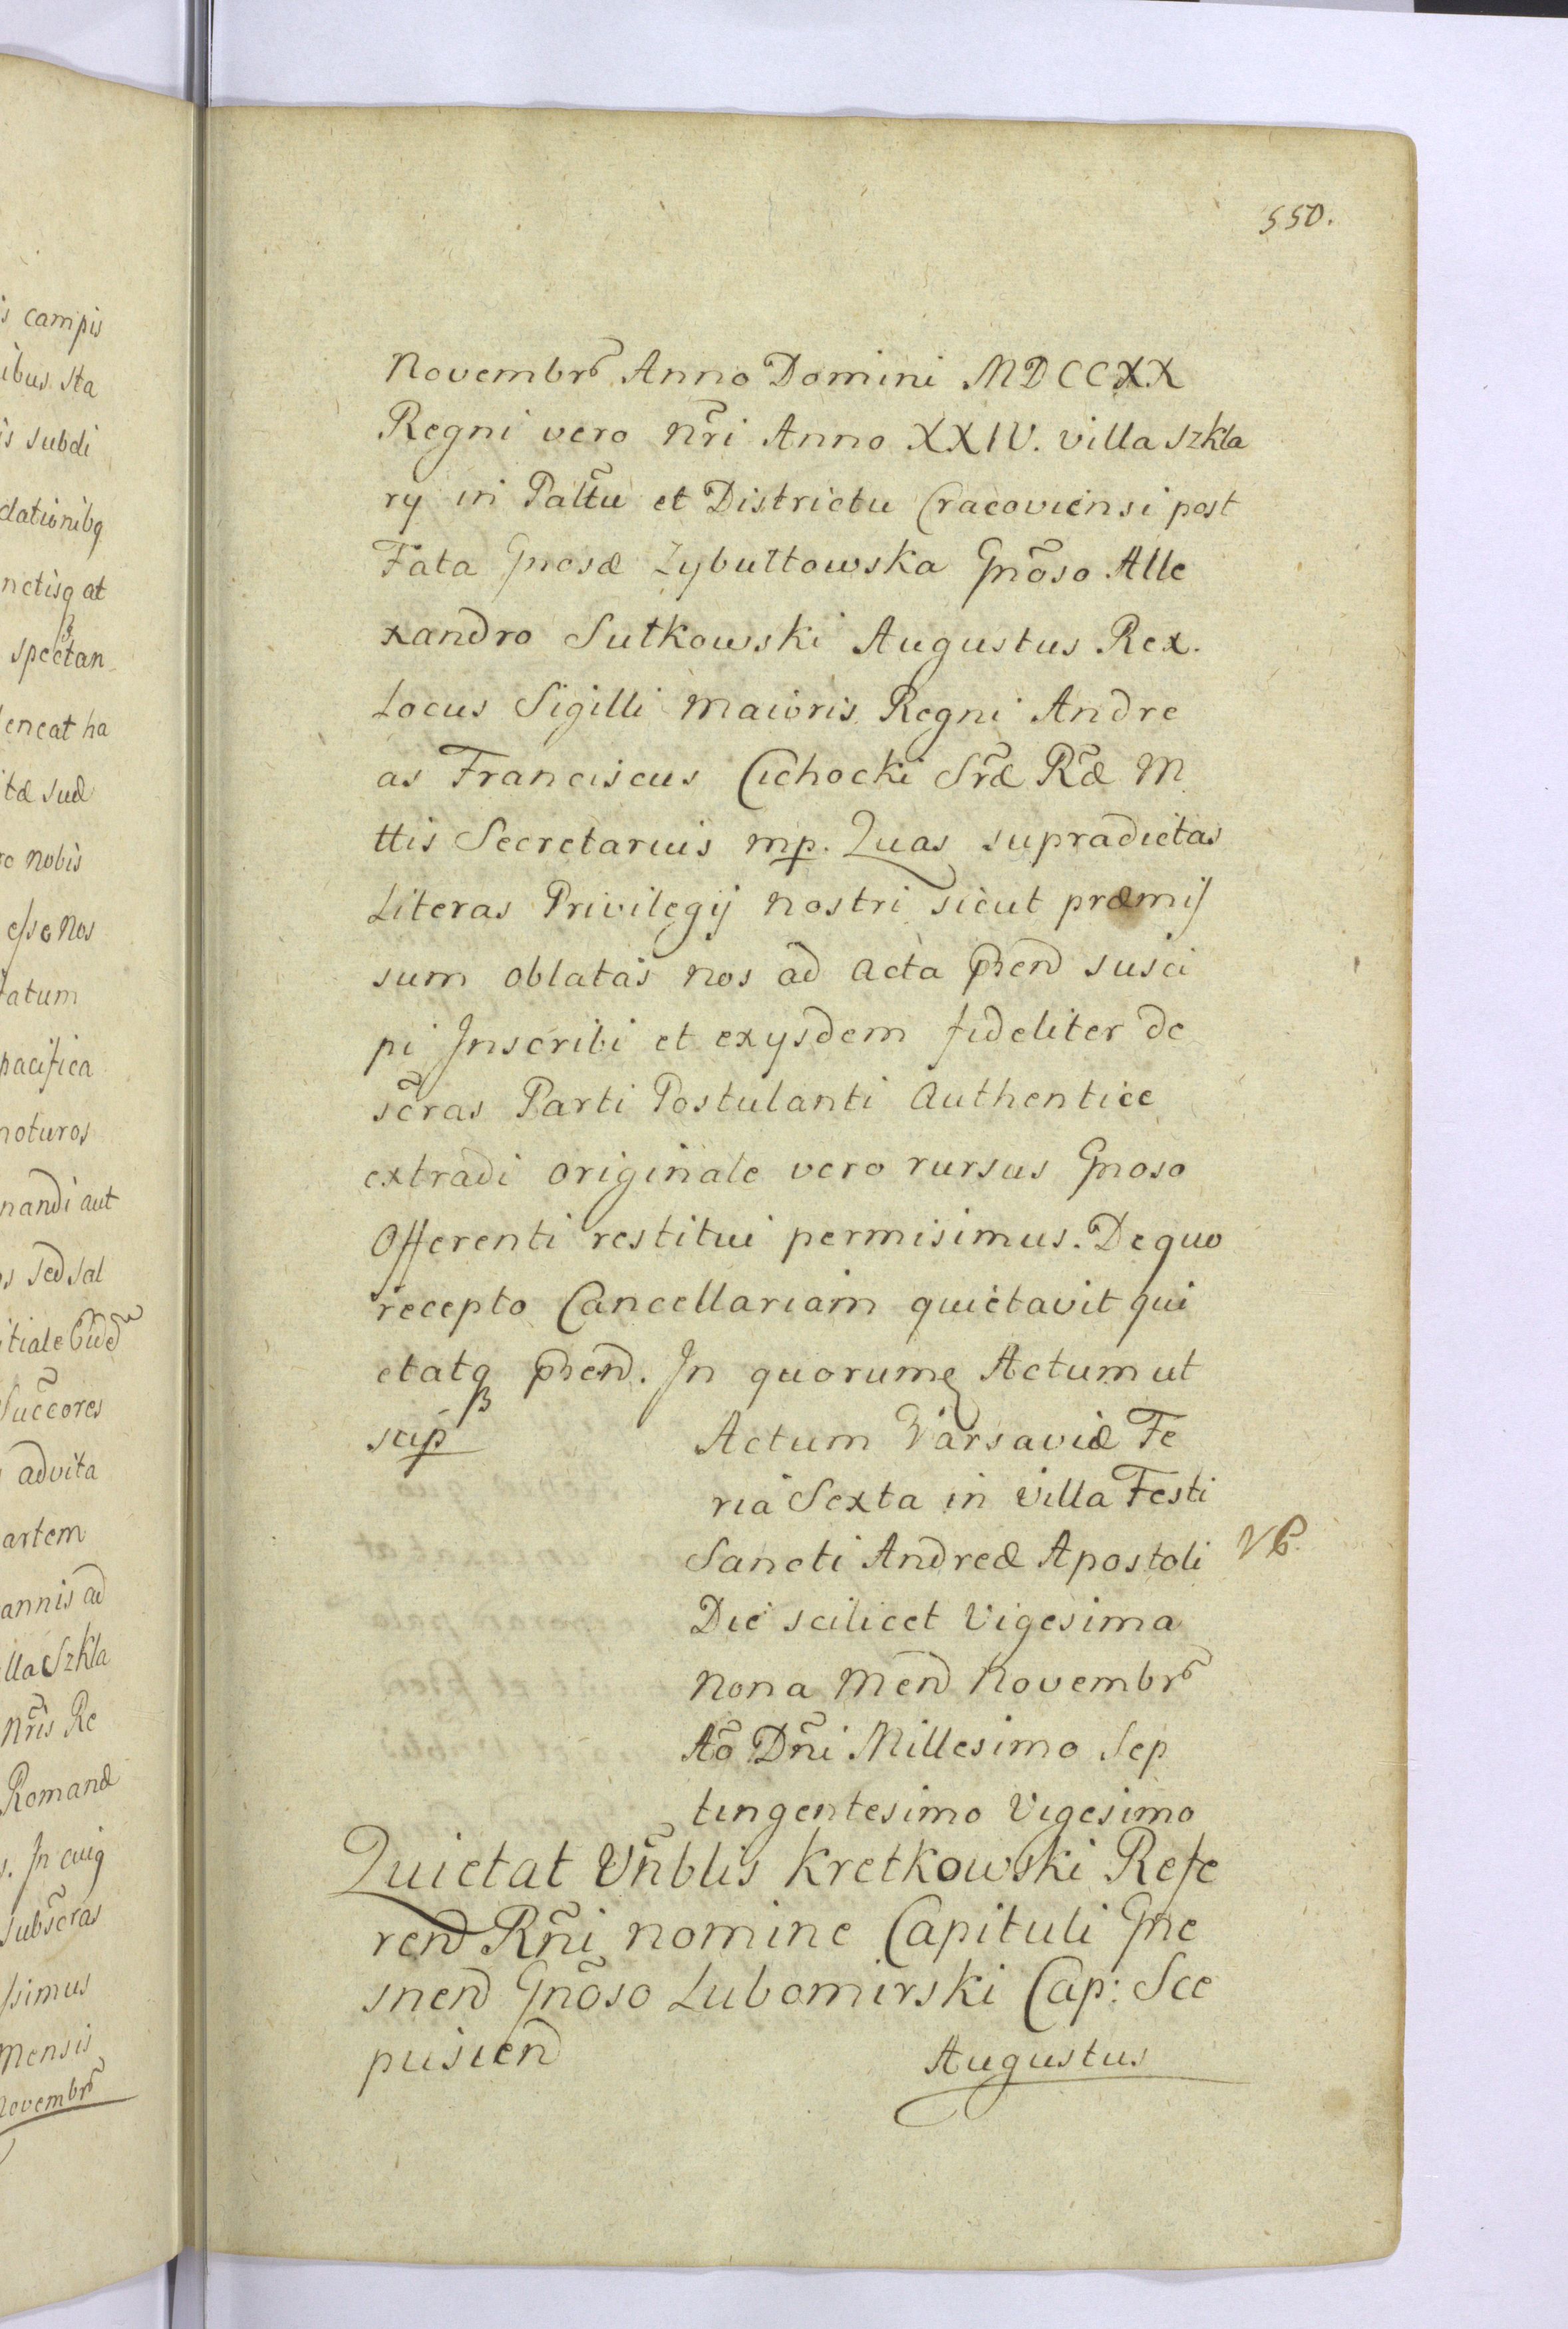 550.
Novembrs Anno Domini MDCCXX
Regni vero nr̃i Anno XXIV. villa Szkla
ry in Palt̃u et Districtu Cracoviensi post
Fata Gnosæ Zybultowska Gnõso Alle
xandro Sutkowski Augustus Rex.
Locus Sigilli Maioris Regni Andre
as Franciscus Cichocki Sr̃æ R̃æ M
ttis Secretarius mp. Quas supradictas
Literas Privilegij nostri sicut præmis
sum oblatas nos ad acta phend susci
pi Inscribi et exysdem fideliter de
scr̃as Parti Postulanti Authentice
extradi originale vero rursus Gnoso
Offerenti restitui permisimus. De quo
recepto Cancellariam quietavit qui
etatq phend. In quorumq Actum ut
scip
Actum Varsaviæ Fe
ria Sexta in villa Festi
Sancti Andreæ Apostoli
Die scilicet Vigesima
Nona Mend Novembrs
Aõ Dñi Millesimo Sep
tingentesimo Vigesimo
Quietat Vñblis Kretkowski Refe
rend Rñi nomine Capituli Gne
snend Gnõso Lubomirski Cap: Sce
pusiend
Augustus
is campis
ibus sta
is subdi
dationibq
nctisq at
spectan
eneat ha
itæ suæ
ro nobis
esse Nos
tatum
pacifica
noturos
nandi aut
os sed sal
Succores
ad vita
artem
annis ad
lla Szkla
nr̃is Re
Romanæ
s. In cuiq
subscr̃as
ssimus
Mensis
Novembrs